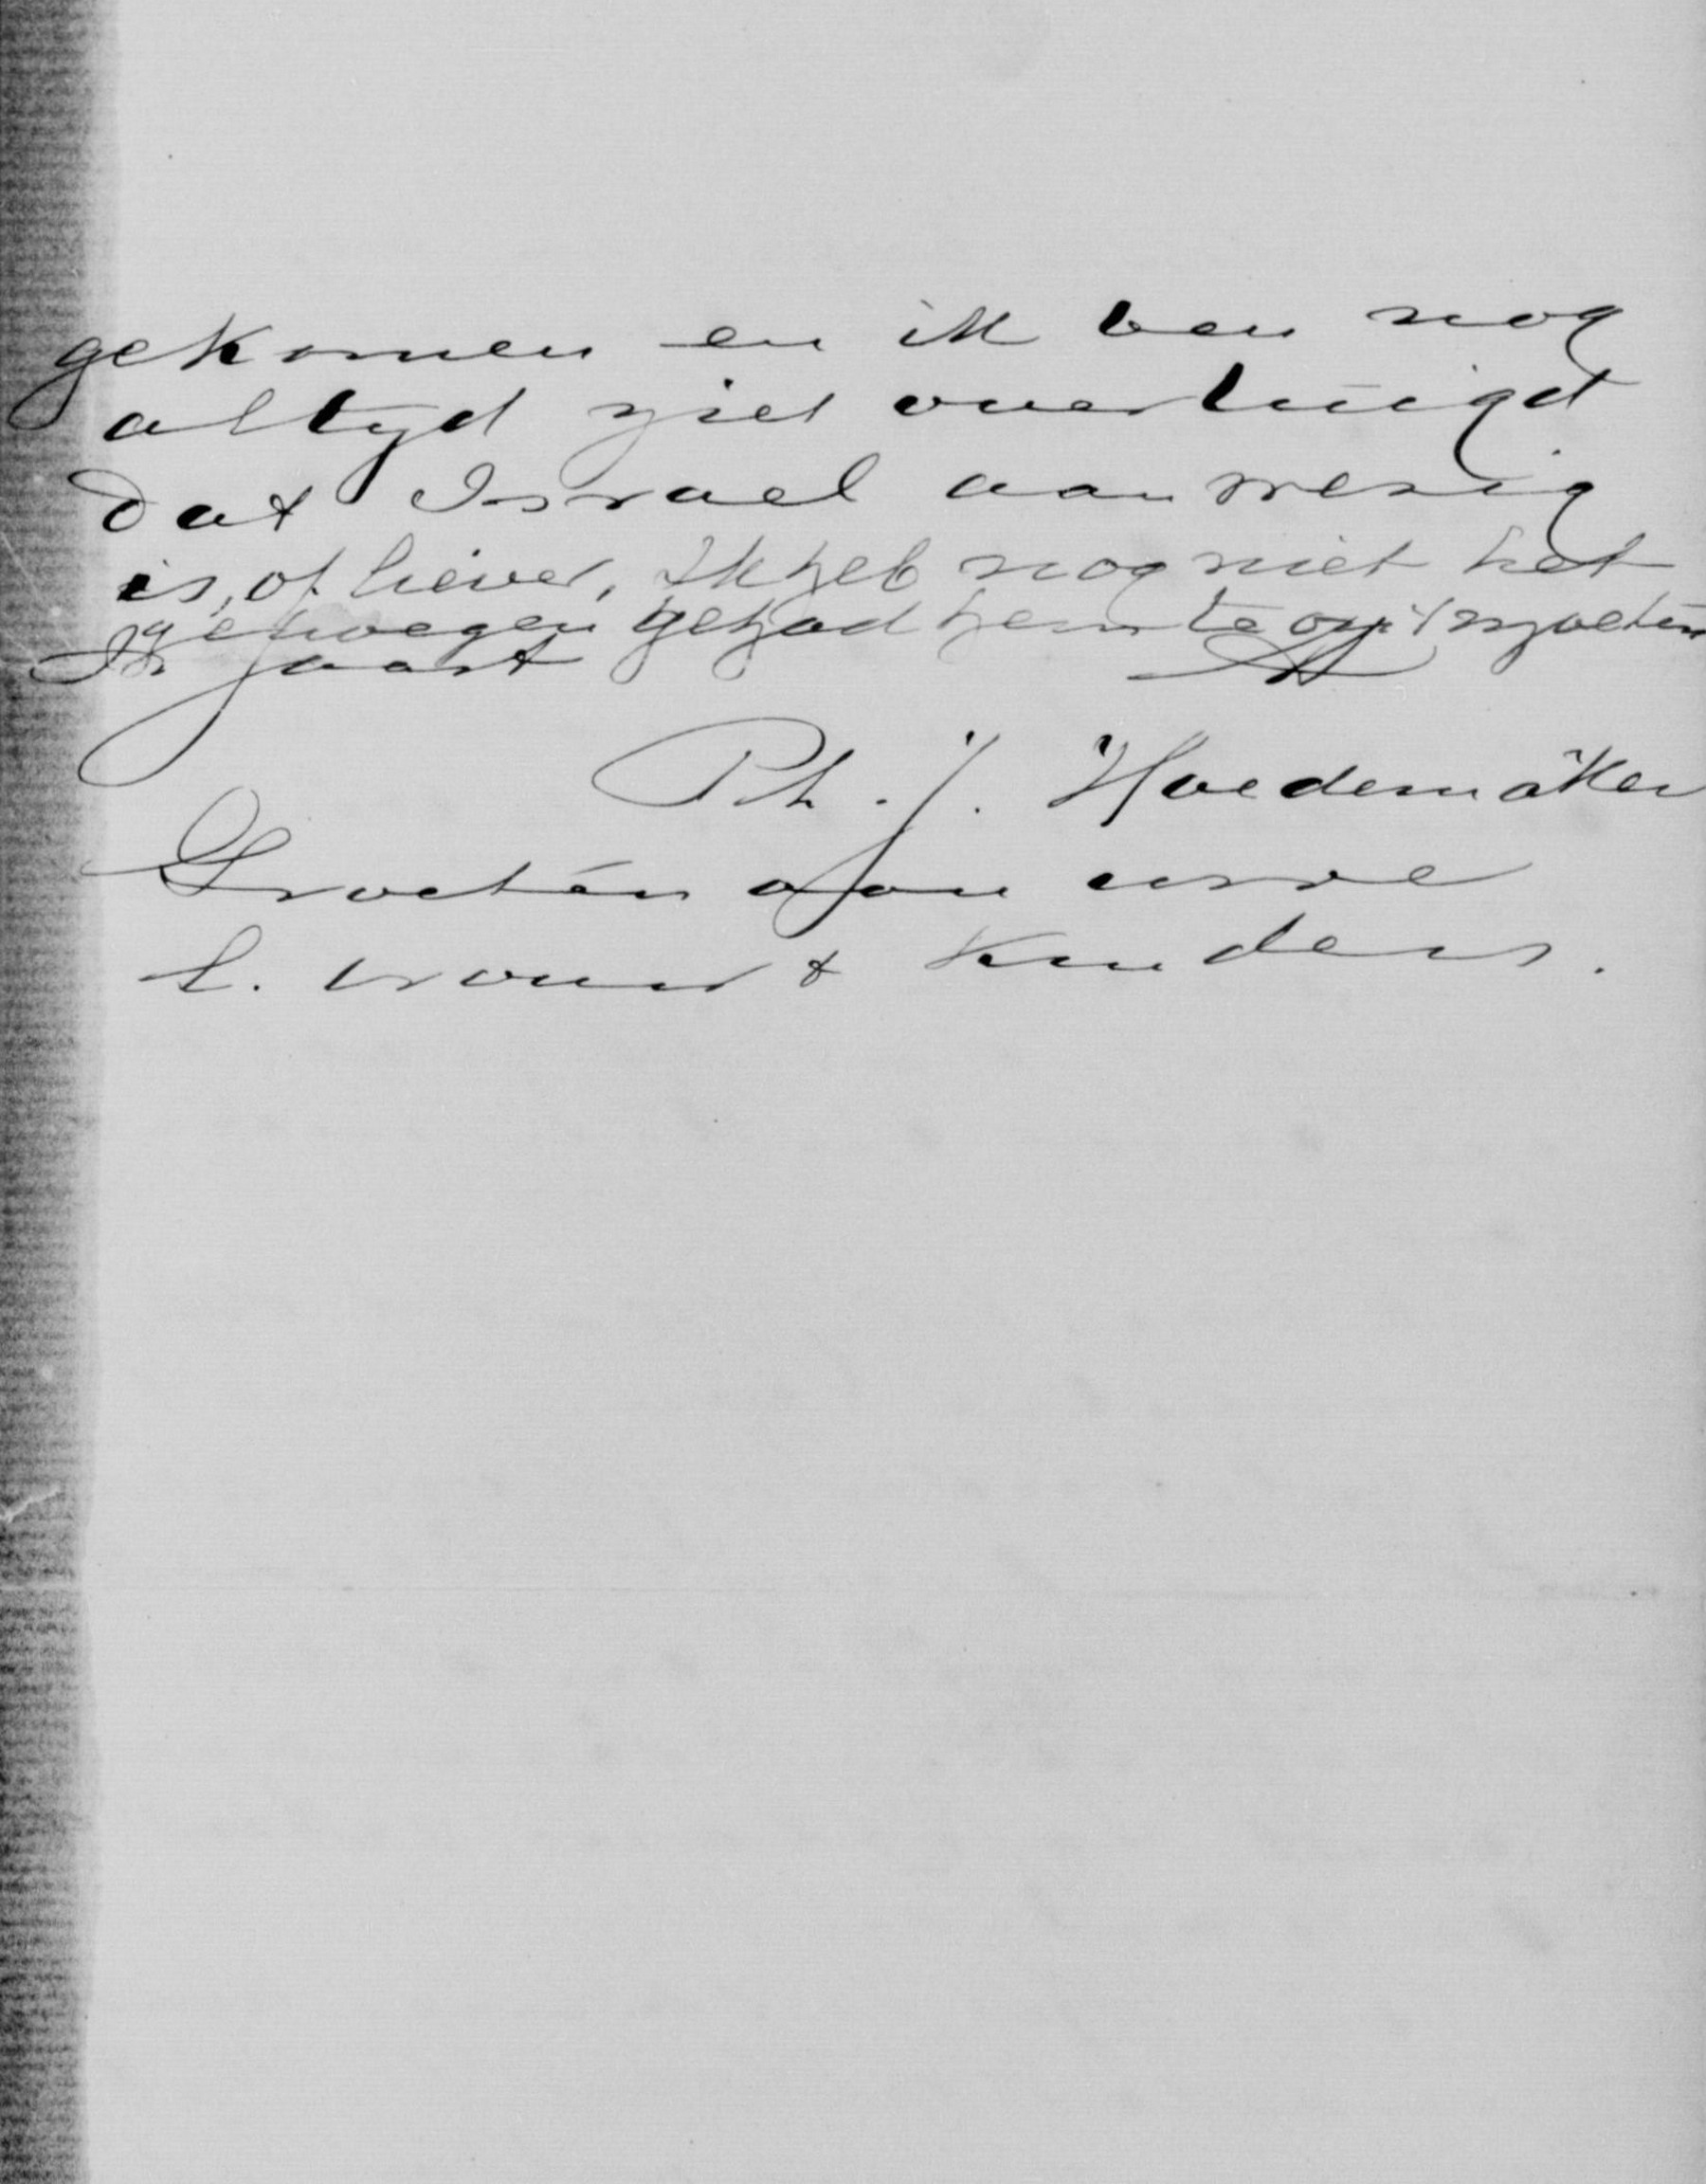 gekomen en ik ben nog
altyd niet overtuigd
dat Israel aanwezig
is, of liever, Ik heb nog niet het
genoegen gehad hem te ontmoeten
In haast
Ph. J. Hoedemaker
Groeten aan uwe
l. vrouw & kinders.